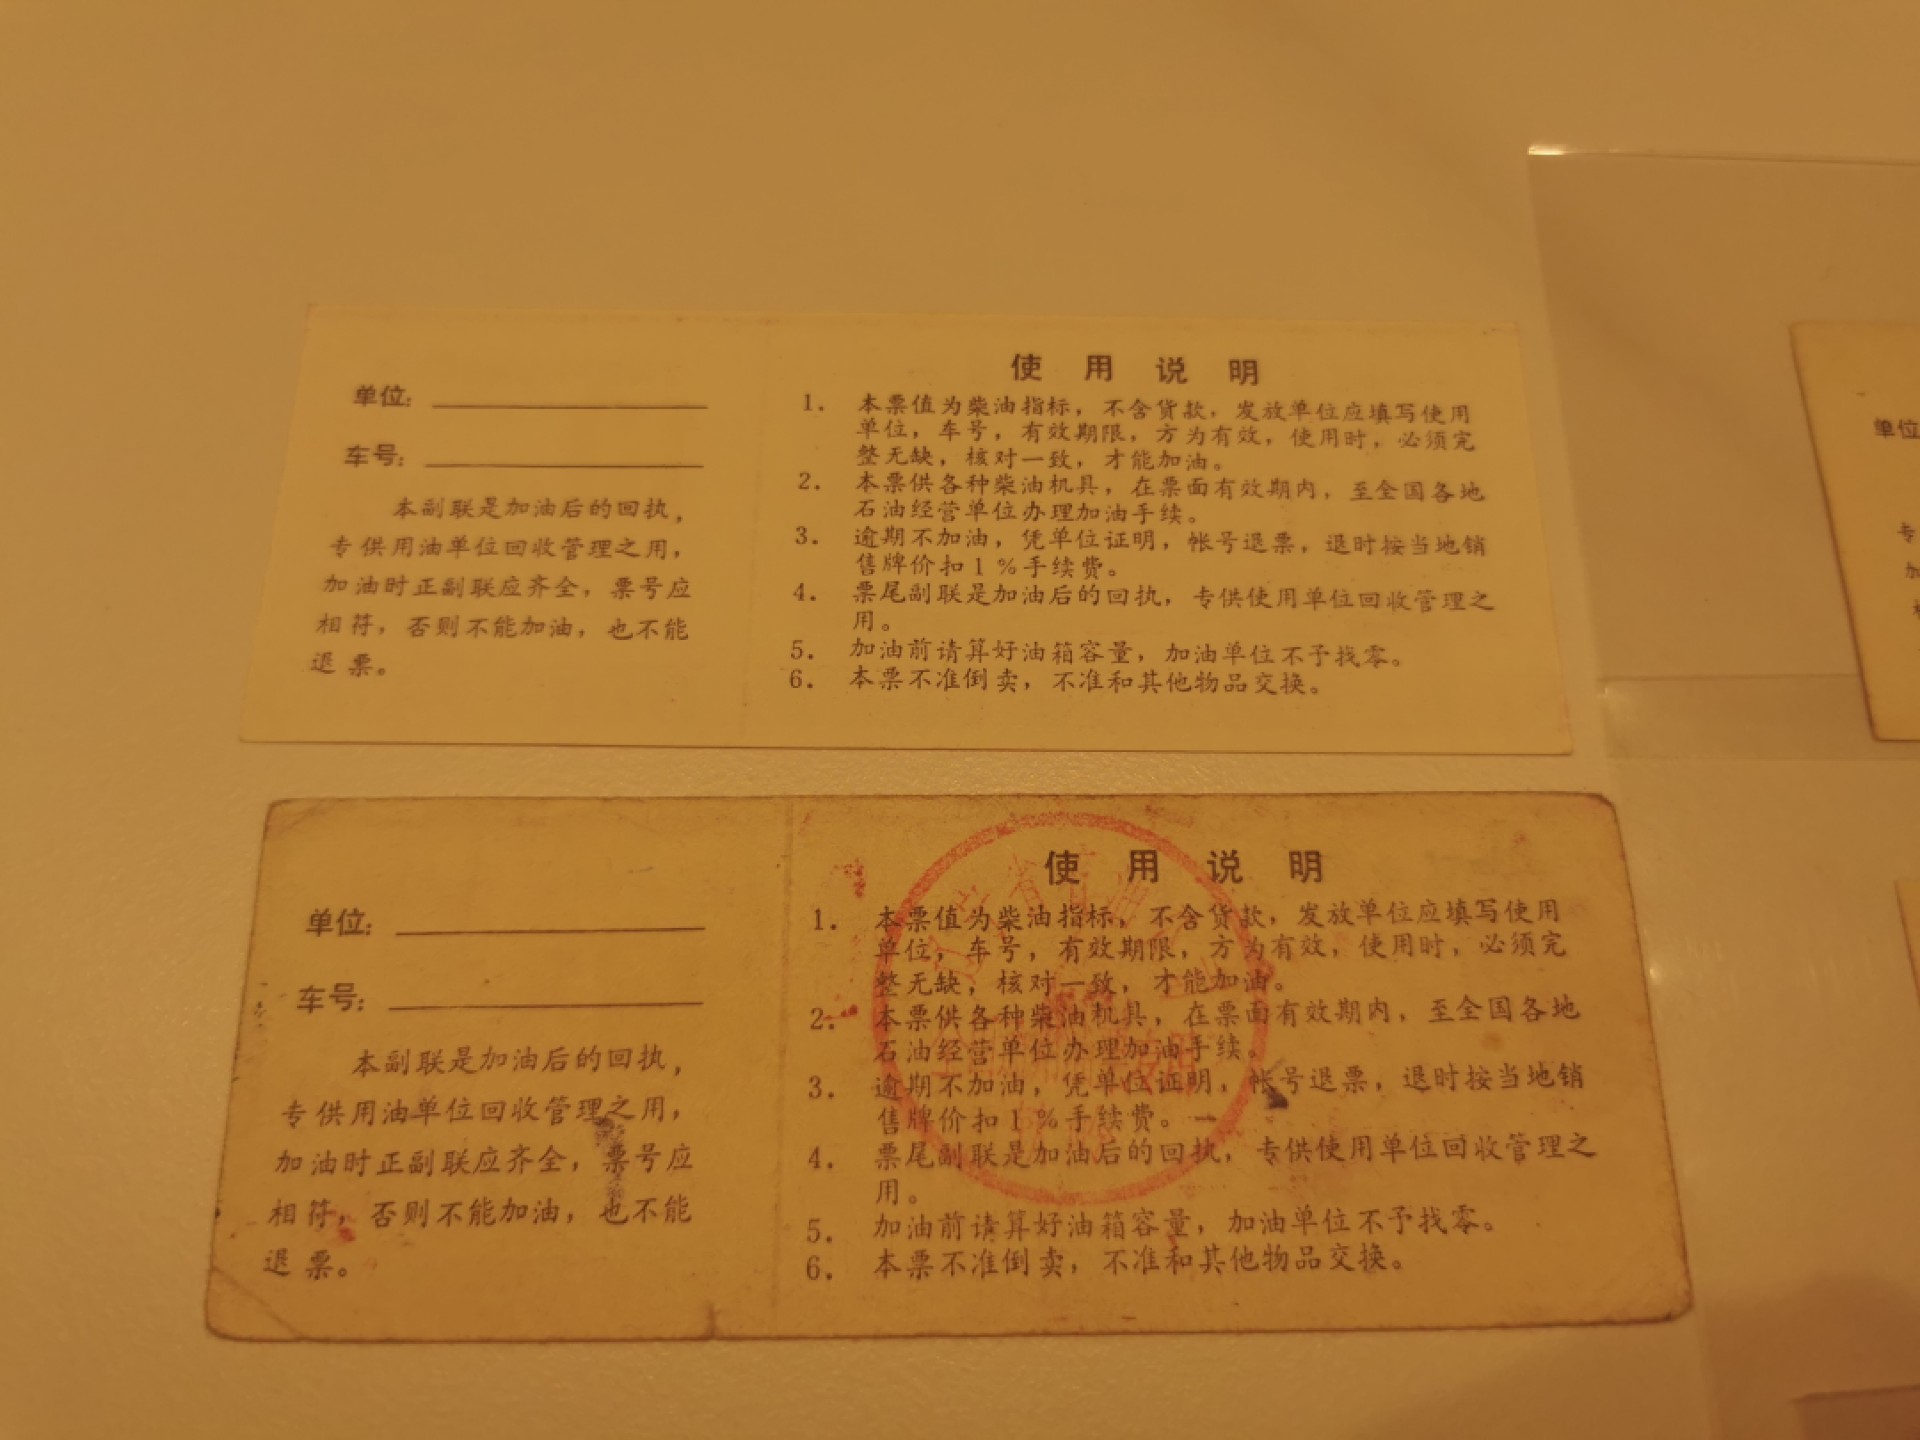 单位:
车号:
本副联是加油后的回执,
专供用油单位回收管理之用,
加油时正副联应齐全,票号应
相符,否则不能加油,也不能
退票。
使用说明
1. 本票值为柴油指标,不含货款,发放单位应填写使用
单位,车号,有效期限,方为有效,使用时,必须完
整无缺,核对一致,才能加油。
2. 本票供各种柴油机具,在票面有效期内,至全国各地
石油经营单位办理加油手续。
3. 逾期不加油,凭单位证明,帐号退票,退时按当地销
售牌价扣1%手续费。
4. 票尾副联是加油后的回执,专供使用单位回收管理之
用。
5. 加油前请算好油箱容量,加油单位不予找零。
6. 本票不准倒卖,不准和其他物品交换。
单位:
车号:
本副联是加油后的回执,
专供用油单位回收管理之用,
加油时正副联应齐全,票号应
相符,否则不能加油,也不能
退票。
使用说明
1. 本票值为柴油指标,不含货款,发放单位应填写使用
单位,车号,有效期限,方为有效,使用时,必须完
整无缺,核对一致,才能加油。
2. 本票供各种柴油机具,在票面有效期内,至全国各地
石油经营单位办理加油手续。
3. 逾期不加油,凭单位证明,帐号退票,退时按当地销
售牌价扣1%手续费。
4. 票尾副联是加油后的回执,专供使用单位回收管理之
用。
5. 加油前请算好油箱容量,加油单位不予找零。
6. 本票不准倒卖,不准和其他物品交换。
单位
专
加